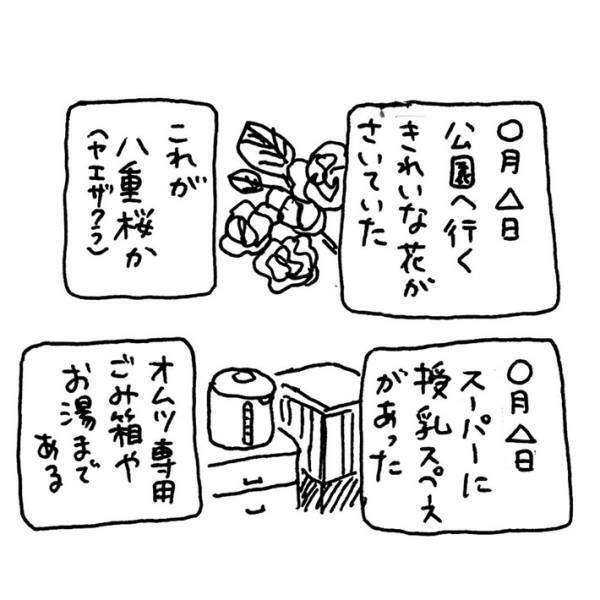 〇月△日
公園へ行く
きれいな花が
さいていた
これが
八重桜か
(ヤエザクラ)
〇月△日
スーパーに
授乳スペース
があった
オムツ専用
ごみ箱や
お湯まで
ある